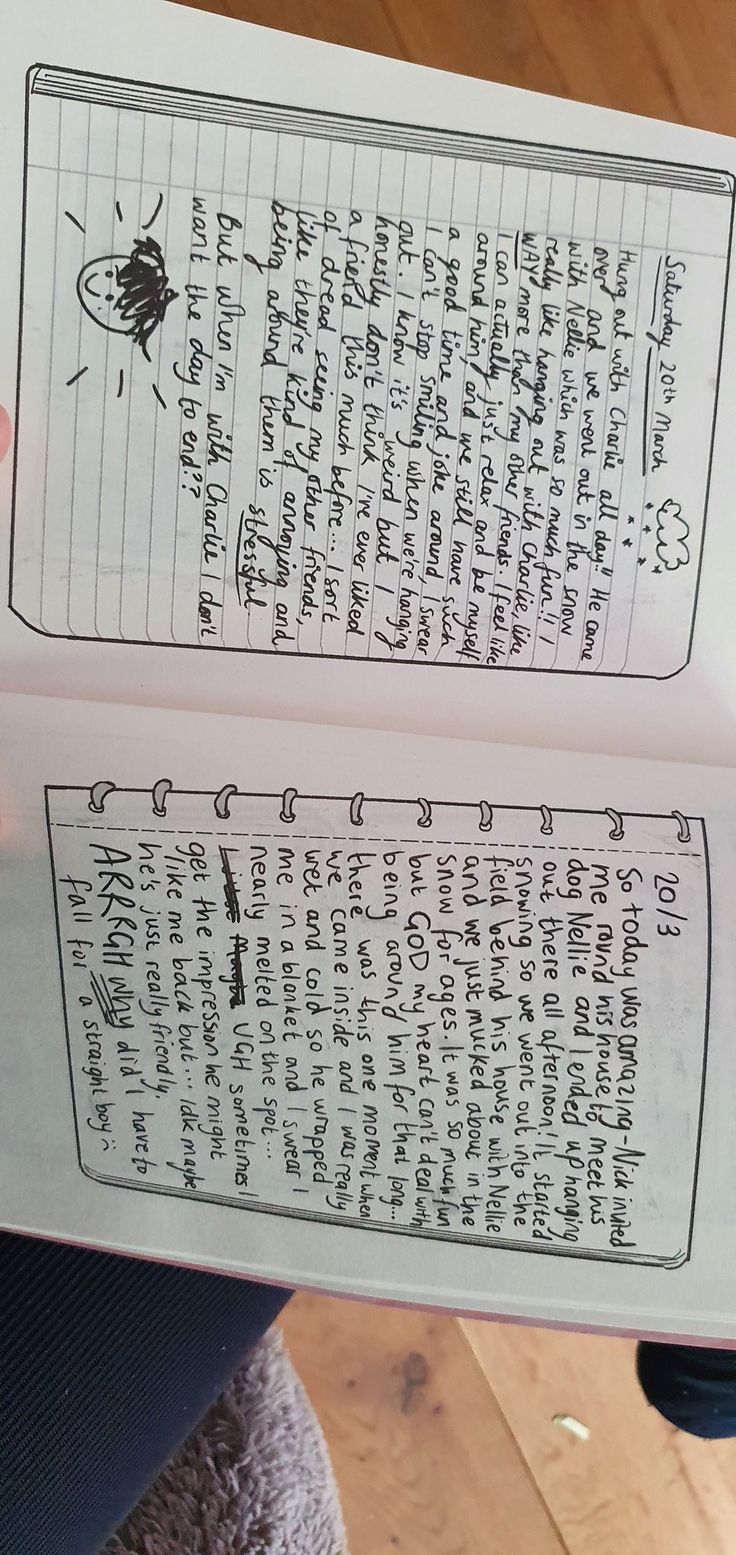 Saturday 20th March
Hung out with Charlie all day!! He came
over and we went out in the snow
with Nellie which was so much fun!! I
really like hanging out with Charlie, like
WAY more than my other friends. I feel like
I can actually just relax and be myself
around him, and we still have such
a good time and joke around, I swear
I can't stop smiling when we're hanging
out. I know it's weird but I
honestly don't think I've ever liked
a friend this much before... I sort
of dread seeing my other friends,
like they're kind of annoying and
being around them is stressful.
But when I'm with Charlie I don't
want the day to end??
20/3
So today was amazing - Nick invited
me round his house to meet his
dog Nellie and I ended up hanging
out there all afternoon! It started
snowing so we went out into the
field behind his house with Nellie
and we just mucked about in the
snow for ages. It was so much fun
but GOD my heart can't deal with
being around him for that long...
there was this one moment when
we came inside and I was really
wet and cold so he wrapped
me in a blanket and I swear I
nearly melted on the spot...
UGH sometimes I
get the impression he might
like me back but... idk maybe
he's just really friendly.
ARRRGH why did I have to
fall for a straight boy :(